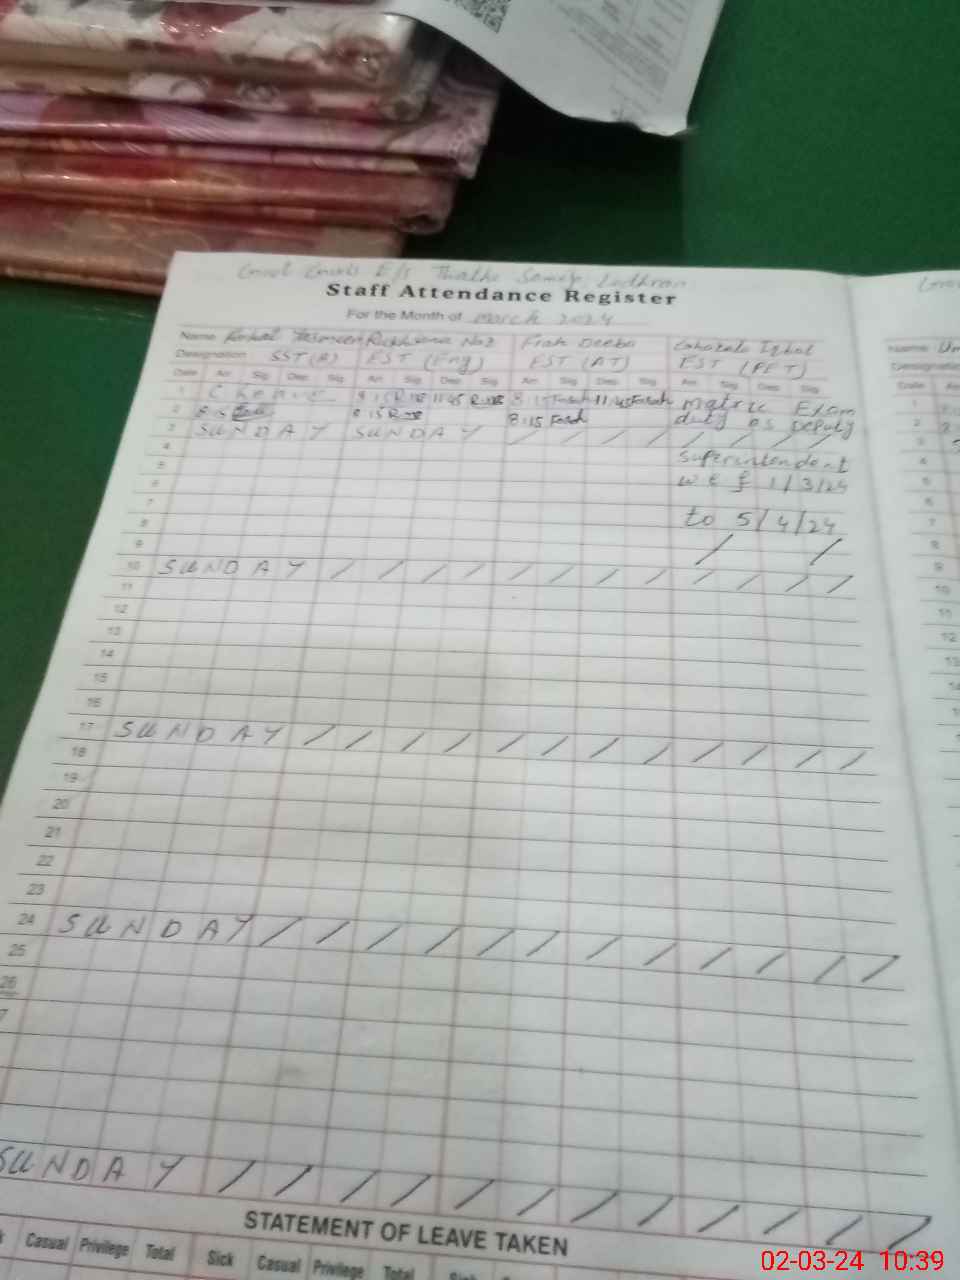 Govt Girls E/S Thathi Lodhran
Staff Attendance Register
For the Month of March 2024
Name Yasmeen Rukhsana Naz Frah Deeba Iqbal
Designation SST (A) EST (Eng) EST (AT) EST (PET)
Date Arr Sig Dep Sig Arr Sig Dep Sig Arr Sig Dep Sig Arr Sig Dep Sig
1 C leave 8:15 11:45 8:15 Farah 11:45 Farah Matric Exam
2 8:15 8:15 8:15 Farah duty as Deputy
3 SUNDAY SUNDAY / / / / / / / /
4 Superintendent
5
6 w e f 1/3/24
7
8 to 5/4/24
9 / /
10 SUNDAY / / / / / / / / / / /
11
12
13
14
15
16
17 SUNDAY / / / / / / / / / / / /
18
19
20
21
22
23
24 SUNDAY / / / / / / / / / / / /
25
26
7
SUNDAY / / / / / / / / / / / / /
STATEMENT OF LEAVE TAKEN
Casual Privilege Total Sick Casual Privilege Total
Name
Designation
Date
1
2
3
4
5
6
7
8
9
10
11
12
13
14
02-03-24 10:39